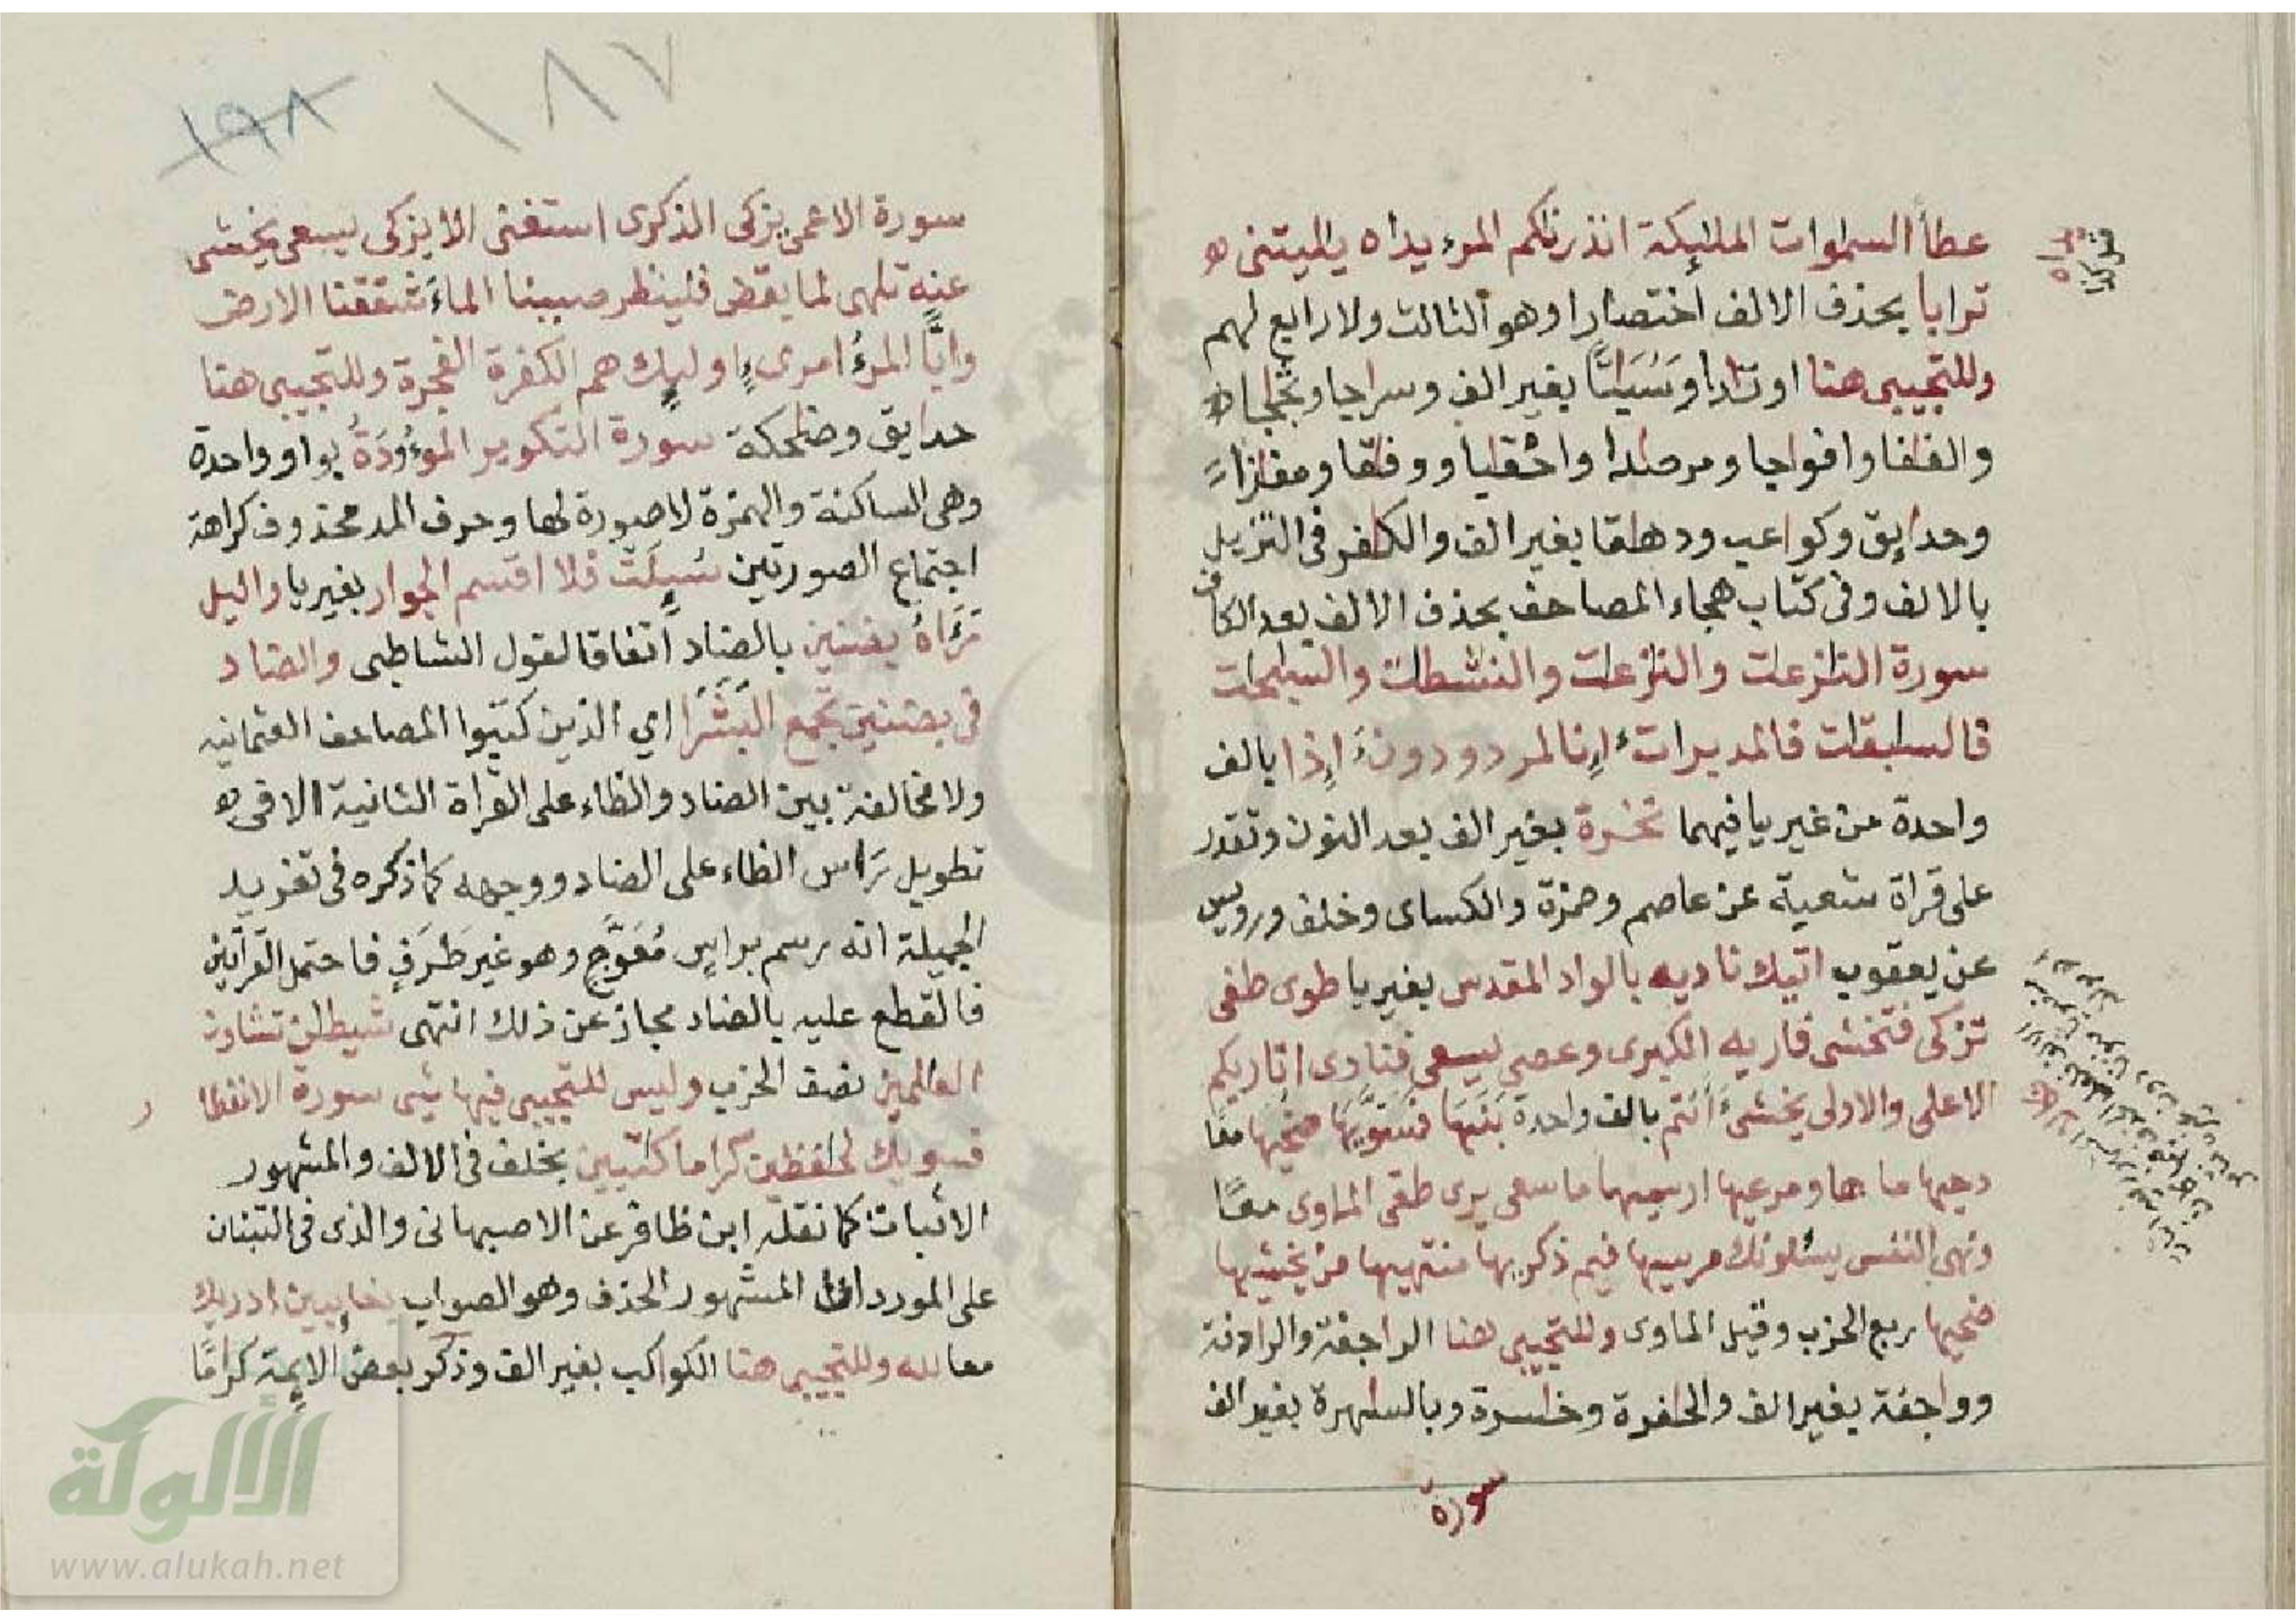 عطاً السموات المليكة انذرناكم المرء يداه يليتنى ه
ترابا بحذف الالف اختصارا وهو الثالث ولا رابع لهم
وللتجيبى هنا اوتدا وسباتا بغير الف وسراجا وثجاجا
والفافا وافواجا ومرصدا واحقبا ووفقا ومفازا
وحدايق وكواعب ودهقا بغير الف والكفر فى التنزيل
بالالف وفى كتاب هجاء المصاحف بحذف الالف بعد الكاف
سورة النازعت والنزعت والنشطت والسبحت
فالسبقت فالمدبرات ءانا لمردودون ءاذا بالف
واحدة من غير يا فيهما نخرة بغير الف بعد النون وتقدر
على قراة شعبة عن عاصم وحمزة والكساى وخلف ورويس
عن يعقوب اتيك ناديه بالواد المقدس بغير يا طوى طغى
تزكى فتخشى فاريه الكبرى وعصى يسعى فنادى اناربكم
الاعلى والاولى يخشى ءانتم بالف واحدة بنيها فسويها ضحيها معا
دحيها ماءها ومرعيها ارسيها ما سعى يرى طغى الماوى معًا
ونهى النفس يسئلونك مرسيها فيم ذكريها منتهيها من يخشيها
ضحيها ربع الحزب وقيل الماوى وللتجيبى هنا الراجفة والرادفة
وواجفة بغير الف والحافرة وخاسرة وبالساهرة بغير الف
سورة
١٨٧
١٩٨
سورة الاعمى يزكى الذكرى استغنى الا يزكى يسعى يخشى
عنه تلهى لما يقض فلينظر صببنا الماء شققنا الارض
وابًّا المرء امرىء اوليك هم الكفرة الفجرة وللتجيبى هنا
حدايق وضحكة سورة التكوير الموءدة بواو واحدة
وهى الساكنة والهمزة لا صورة لها وحرف المد محذوف كراهة
اجتماع الصورتين سئلت فلا اقسم الجوار بغير يا واليل
رءاه بضنين بالضاد اتفاقا لقول الشاطبى والضاد
فى بضنين تجمع البشرا اي الذين كتبوا المصاحف العثمانيه
ولا مخالفة بين الضاد والظاء على القراة الثانية الا فى ه
تطويل راس الظاء على الضاد ووجهه كما ذكره فى تغريد
الجميلة انه رسم براس معوج وهو غير طرف فاحتمل القراتين
فالقطع عليه بالضاد مجاز عن ذلك انتهى شيطن تشاون
العالمين نصف الحزب وليس للتجيبى فيها شى سورة الانفطا
ر
فسويك لحفظين كراما كتبين بخلف فى الالف والمشهور
الاثبات كما نقله ابن ظافر عن الاصبهانى والذى فى التبنان
على المورد ان المشهور الحذف وهو الصواب بغايبين ادريك
معا لله وللتجيبى هنا الكواكب بغير الف وذكر بعض الايمة كرامًا
الألوكة
www.alukah.net